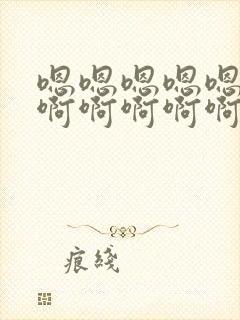 嗯嗯嗯嗯嗯
啊啊啊啊啊
痕綫